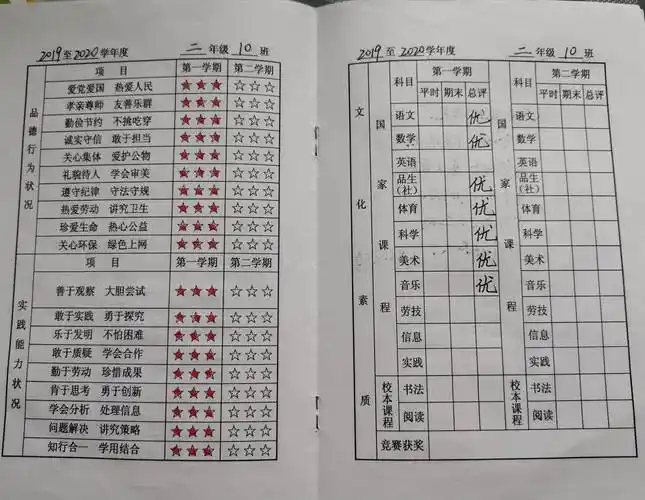 2019至2020学年度 二年级10班
品德行为状况
项 目 第一学期 第二学期
爱党爱国 热爱人民 ★★★ ☆☆☆
孝亲尊师 友善乐群 ★★★ ☆☆☆
勤俭节约 不挑吃穿 ★★★ ☆☆☆
诚实守信 敢于担当 ★★★ ☆☆☆
关心集体 爱护公物 ★★★ ☆☆☆
礼貌待人 学会审美 ★★★ ☆☆☆
遵守纪律 守法守规 ★★★ ☆☆☆
热爱劳动 讲究卫生 ★★★ ☆☆☆
珍爱生命 热心公益 ★★★ ☆☆☆
关心环保 绿色上网 ★★★ ☆☆☆
实践能力状况
项 目 第一学期 第二学期
善于观察 大胆尝试 ★★★ ☆☆☆
敢于实践 勇于探究 ★★★ ☆☆☆
乐于发明 不怕困难 ★★★ ☆☆☆
敢于质疑 学会合作 ★★★ ☆☆☆
勤于劳动 珍惜成果 ★★★ ☆☆☆
肯于思考 勇于创新 ★★★ ☆☆☆
学会分析 处理信息 ★★★ ☆☆☆
问题解决 讲究策略 ★★★ ☆☆☆
知行合一 学用结合 ★★★ ☆☆☆
2019至2020学年度 二年级10班
文化素质
国家课程 国家课程
科目 第一学期 科目 第二学期
平时 期末 总评 平时 期末 总评
语文 优 语文
数学 优 数学
英语 英语
品生(社) 优 品生(社)
体育 优 体育
科学 优 科学
美术 优 美术
音乐 优 音乐
劳技 劳技
信息 信息
实践 实践
校本课程 校本课程
书法 书法
阅读 阅读
竞赛获奖